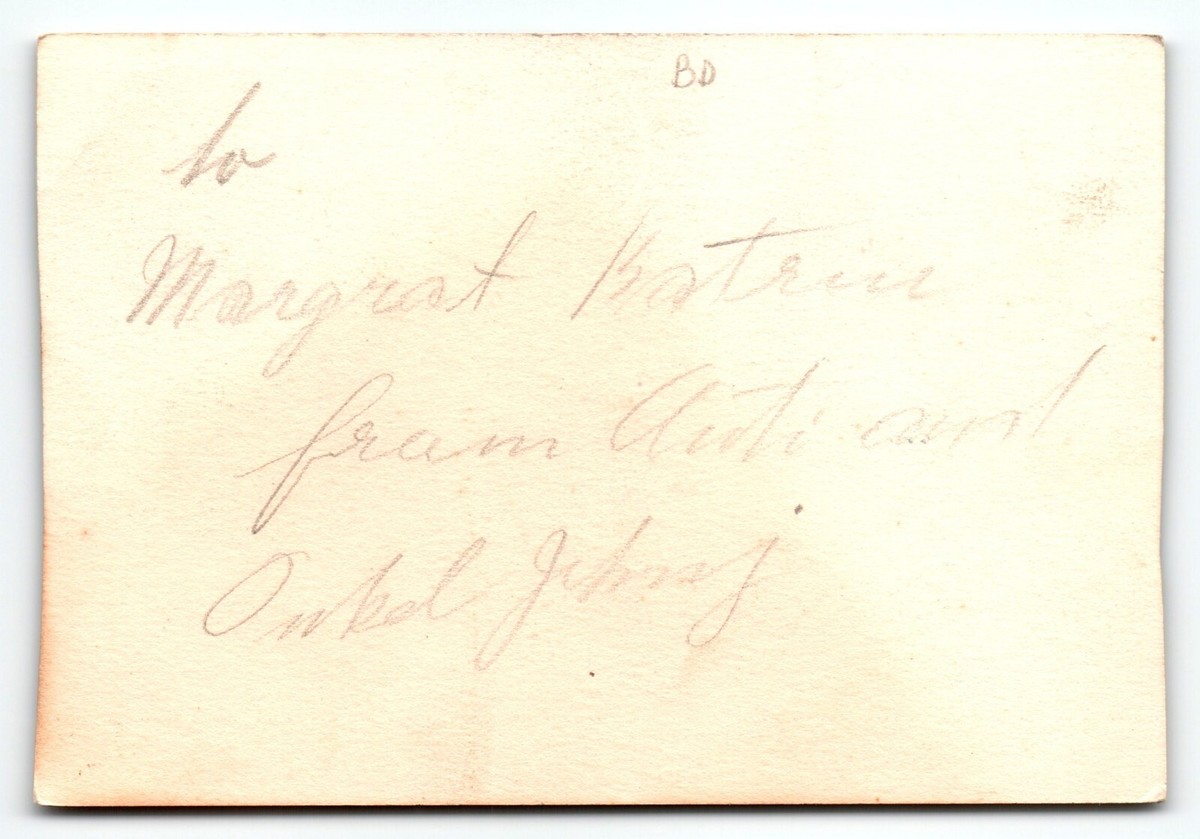 BD
to
Margrat Katrine
fram Anti and
Onkel Johny